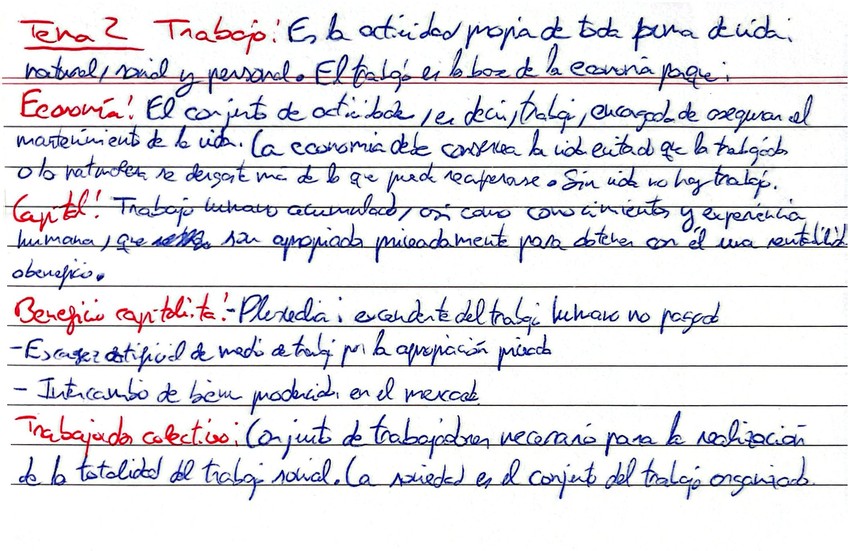 Tema 2 Trabajo: Es la actividad propia de toda forma de vida:
natural, social y personal. El trabajo es la base de la economía porque:
Economía: El conjunto de actividades, es decir, trabajo, encargadas de aseguran el
mantenimiento de la vida. La economía debe conservar la vida evitando que la trabajado
o la naturaleza se desgaste más de lo que puede recuperarse. Sin vida no hay trabajo.
Capital: Trabajo humano acumulado, así como conocimientos y experiencia
humana, que son apropiada privadamente para obtener con él una rentabilidad
o beneficio.
Beneficio capitalista: - Plusvalía: excendente del trabajo humano no pagado
- Escasez artificial de medio de trabajo por la apropiación privada
- Intercambio de bienes producidos en el mercado
Trabajador colectivo: Conjunto de trabajadores necesario para la realización
de la totalidad del trabajo social. La sociedad es el conjunto del trabajo organizado.